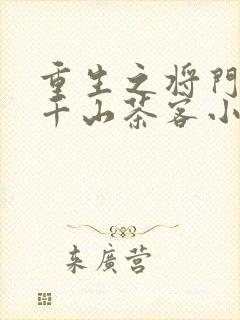 重生之将门
千山茶客小
来廣营